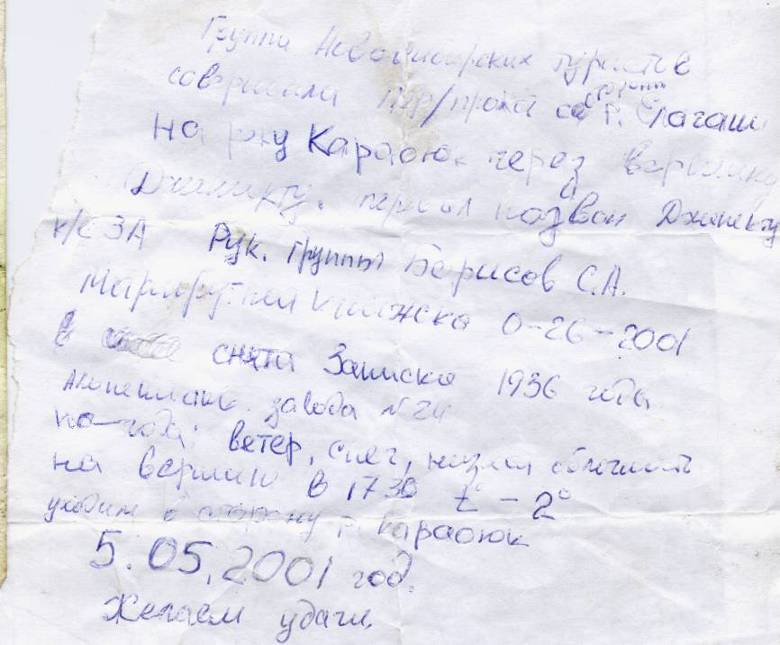 Группа Новосибирских туристов
совершила пер/проход со стороны р. Елагаш
на реку Караоюк через вершину
Джинекту. перевал назван Джинекту
к/с 3А Рук. группы Борисов С.А.
Маршрутная книжка 0-26-2001
снята Записка 1936 года
завода N 24
погода: ветер, снег, низкая облачность
на вершине в 1730 t° - 2°
уходим в сторону р. Караоюк
5.05.2001 год.
Желаем удачи.